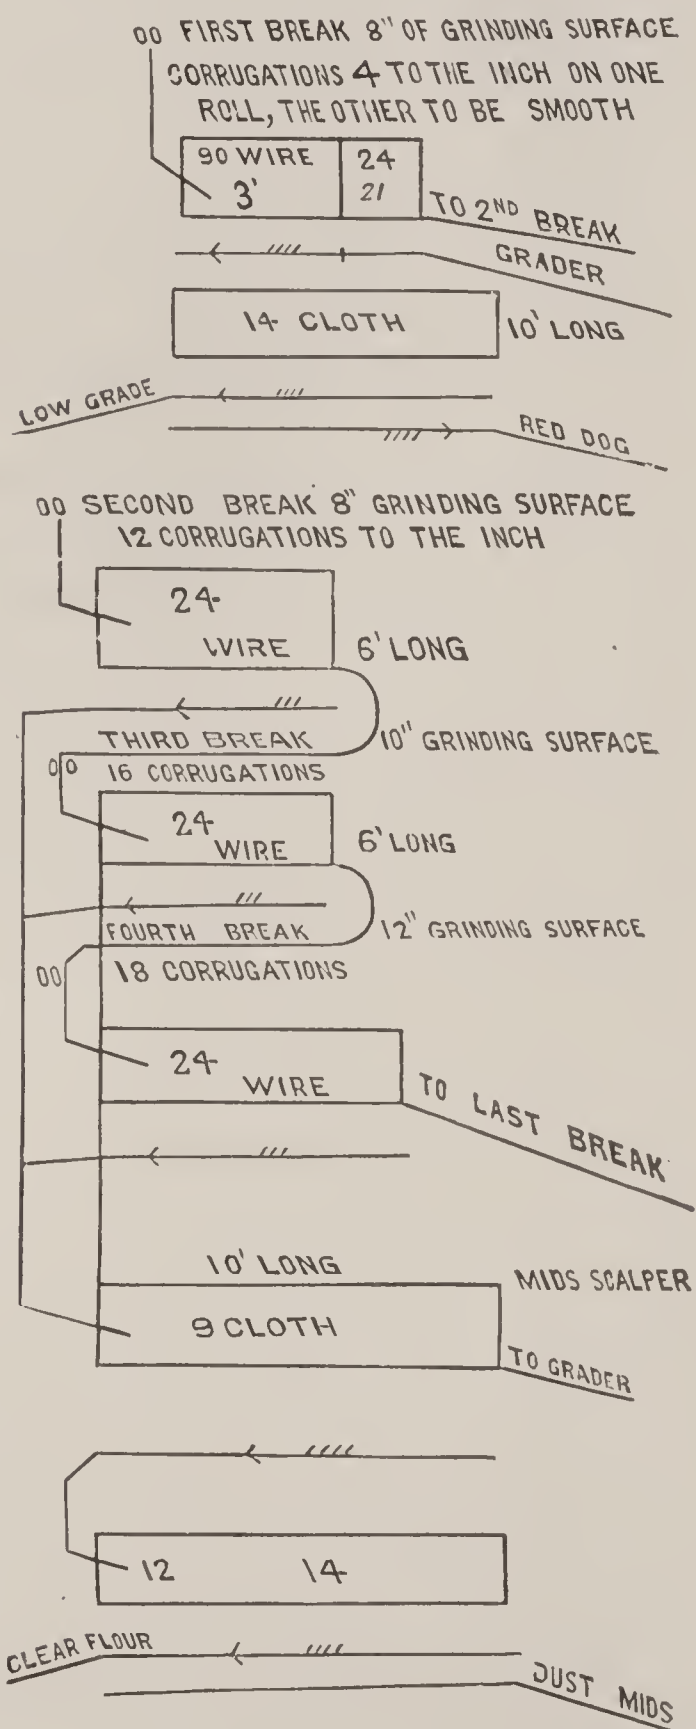 00 FIRST BREAK 8" OF GRINDING SURFACE
CORRUGATIONS 4 TO THE INCH ON ONE
ROLL, THE OTHER TO BE SMOOTH
90 WIRE 24
3' 21
TO 2ND BREAK
GRADER
14 CLOTH 10' LONG
LOW GRADE
RED DOG
00 SECOND BREAK 8" GRINDING SURFACE
12 CORRUGATIONS TO THE INCH
24
WIRE 6' LONG
THIRD BREAK 10" GRINDING SURFACE
00 16 CORRUGATIONS
24
WIRE 6' LONG
FOURTH BREAK 12" GRINDING SURFACE
00 18 CORRUGATIONS
24
WIRE
TO LAST BREAK
10' LONG MIDS SCALPER
9 CLOTH
TO GRADER
12 14
CLEAR FLOUR
DUST MIDS